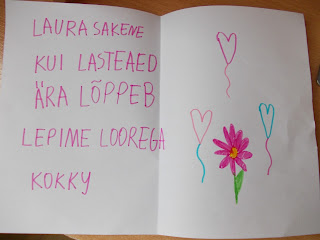 LAURA SAKENE
KUI LASTEAED
ÄRA LÕPPEB
LEPIME LOOREGA
KOKKY